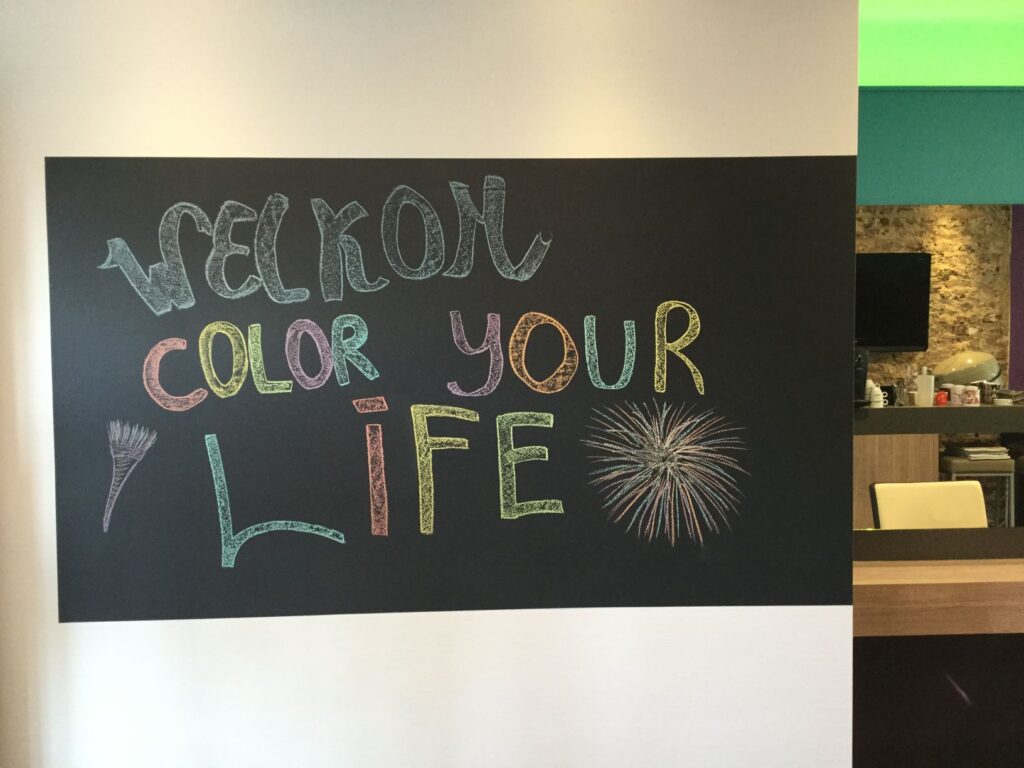 WELKOM
COLOR YOUR
LiFE